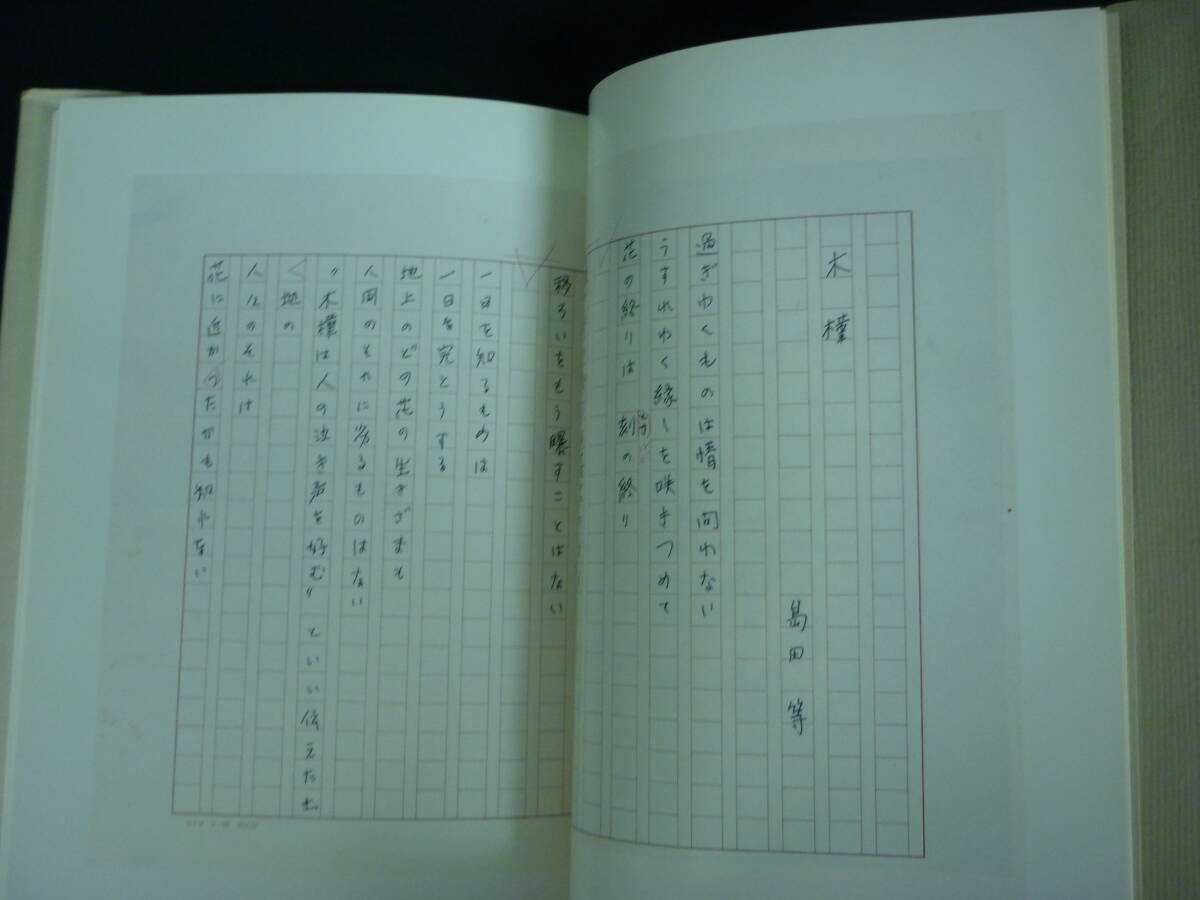 木槿
島田等
過ぎゆくものは情を問わない
うすれゆく縁しを咲きつめて
花の終りは 刻の終り
移ろいをもう曝すことはない
一日を知るものは
一日を完とうする
地上のどの花の生きざまも
人間のそれに劣るものはない
〃木槿は人の泣き声を好む〃といい伝えた土
地の
人々のそれは
花に近かったかも知れない